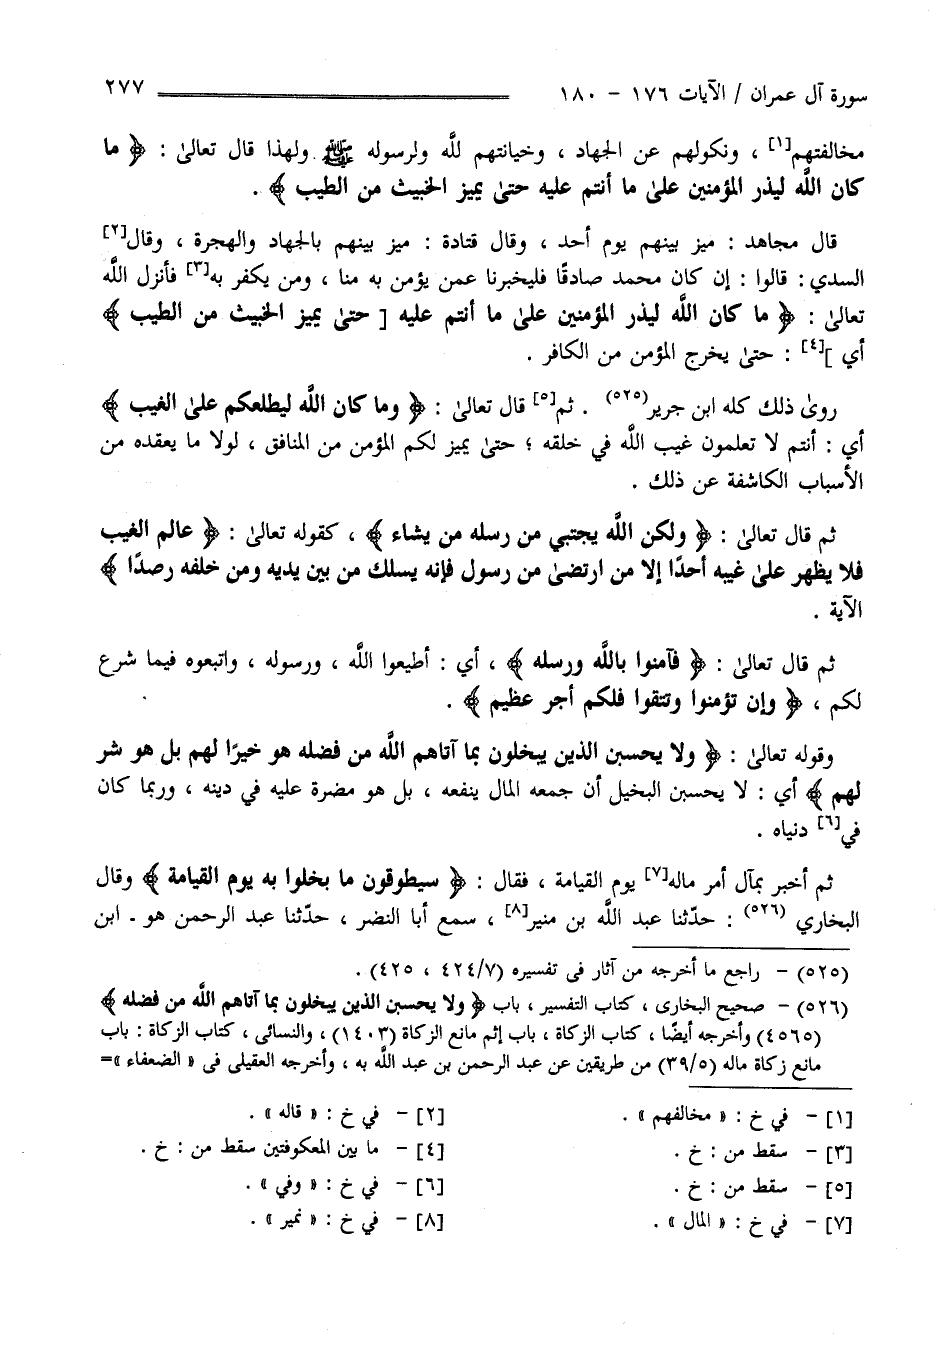 سورة آل عمران / الآيات ١٧٦ - ١٨٠ ٢٧٧
مخالفتهم[١] ، ونكولهم عن الجهاد ، وخيانتهم للَّه ولرسوله ﷺ ولهذا قال تعالىٰ : ﴿ ما
كان اللَّه ليذر المؤمنين علىٰ ما أنتم عليه حتىٰ يميز الخبيث من الطيب ﴾ .
قال مجاهد : ميز بينهم يوم أحد ، وقال قتادة : ميز بينهم بالجهاد والهجرة ، وقال[٢]
السدي : قالوا : إن كان محمد صادقًا فليخبرنا عمن يؤمن به منا ، ومن يكفر به[٣] فأنزل اللَّه
تعالىٰ : ﴿ ما كان اللَّه ليذر المؤمنين علىٰ ما أنتم عليه [ حتىٰ يميز الخبيث من الطيب ﴾
أي ][٤] : حتىٰ يخرج المؤمن من الكافر .
روىٰ ذلك كله ابن جرير(٥٢٥) . ثم[٥] قال تعالىٰ : ﴿ وما كان اللَّه ليطلعكم علىٰ الغيب ﴾
أي : أنتم لا تعلمون غيب اللَّه في خلقه ؛ حتىٰ يميز لكم المؤمن من المنافق ، لولا ما يعقده من
الأسباب الكاشفة عن ذلك .
ثم قال تعالىٰ : ﴿ ولكن اللَّه يجتبي من رسله من يشاء ﴾ ، كقوله تعالىٰ : ﴿ عالم الغيب
فلا يظهر علىٰ غيبه أحدًا إلا من ارتضىٰ من رسول فإنه يسلك من بين يديه ومن خلفه رصدًا ﴾
الآية .
ثم قال تعالىٰ : ﴿ فآمنوا باللَّه ورسله ﴾ ، أي : أطيعوا اللَّه ، ورسوله ، واتبعوه فيما شرع
لكم ، ﴿ وإن تؤمنوا وتتقوا فلكم أجر عظيم ﴾ .
وقوله تعالىٰ : ﴿ ولا يحسبن الذين يبخلون بما آتاهم اللَّه من فضله هو خيرًا لهم بل هو شر
لهم ﴾ أي : لا يحسبن البخيل أن جمعه المال ينفعه ، بل هو مضرة عليه في دينه ، وربما كان
في[٦] دنياه .
ثم أخبر بمآل أمر ماله[٧] يوم القيامة ، فقال : ﴿ سيطوقون ما بخلوا به يوم القيامة ﴾ وقال
البخاري (٥٢٦) : حدّثنا عبد اللَّه بن منير[٨] ، سمع أبا النضر ، حدّثنا عبد الرحمن هو - ابن
(٥٢٥) - راجع ما أخرجه من آثار فى تفسيره (٤٢٤/٧ ، ٤٢٥) .
(٥٢٦) - صحيح البخارى ، كتاب التفسير ، باب ﴿ ولا يحسبن الذين يبخلون بما آتاهم اللَّه من فضله ﴾
(٤٥٦٥) وأخرجه أيضًا ، كتاب الزكاة ، باب إثم مانع الزكاة (١٤٠٣) ، والنسائى ، كتاب الزكاة : باب
مانع زكاة ماله (٣٩/٥) من طريقين عن عبد الرحمن بن عبد اللَّه به ، وأخرجه العقيلى فى « الضعفاء »=
[١] - في خ : « مخالفهم » . [٢] - في خ : « قاله » .
[٣] - سقط من : خ . [٤] - ما بين المعكوفتين سقط من : خ .
[٥] - سقط من : خ . [٦] - في خ : « وفي » .
[٧] - في خ : « المال » . [٨] - في خ : « نمير » .